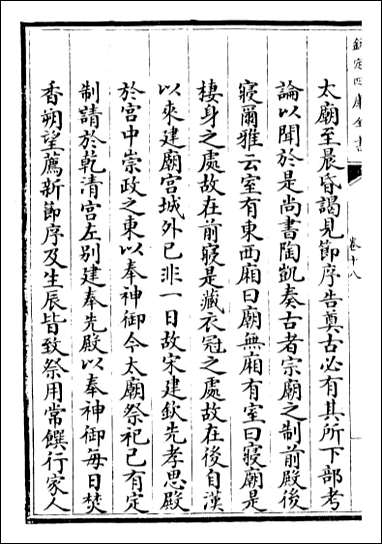 欽定四庫全書
卷十八
太廟至晨昏謁見節序告奠古必有其所下部考
論以聞於是尚書陶凱奏古者宗廟之制前殿後
寢爾雅云室有東西廂曰廟無廂有室曰寢廟是
棲身之處故在前寢是藏衣冠之處故在後自漢
以來建廟宮城外已非一日故宋建欽先孝思殿
於宮中崇政之東以奉神御今太廟祭祀已有定
制請於乾清宮左別建奉先殿以奉神御每日焚
香朔望薦新節序及生辰皆致祭用常饌行家人